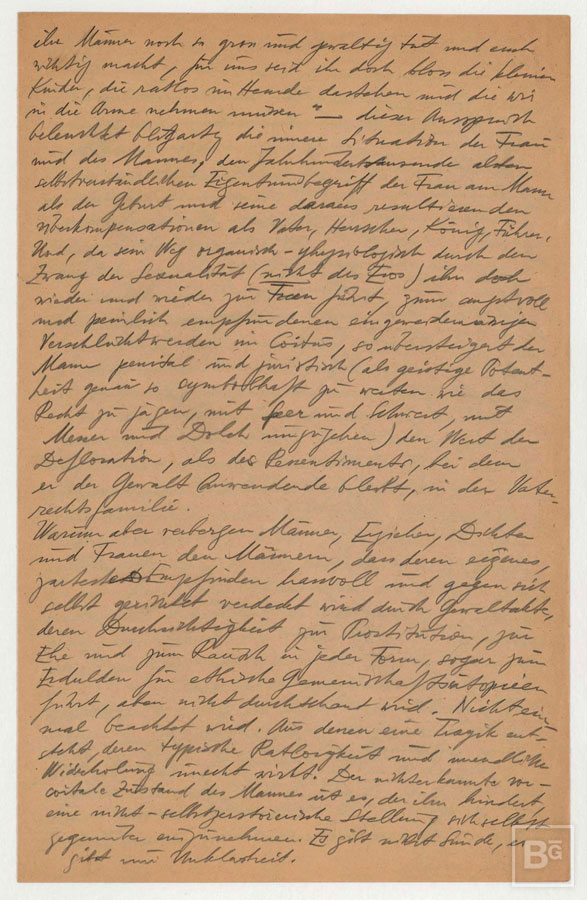 ihr Männer noch so gross und gewaltig tut und euch
wichtig macht, für uns seid ihr doch bloss die kleinen
Kinder, die ratlos im Hemde dastehen und die wir
in die Arme nehmen müssen" — dieser Ausspruch
beleuchtet blitzartig die innere Situation der Frau
und des Mannes, den Jahrhundertausende alten
selbstverständlichen Eigentumsbegriff der Frau am Manne
als der Geburt und seine daraus resultierenden
Überkompensationen als Vater, Herrscher, König, Führer.
Und, da sein Weg organisch-physiologisch durch den
Zwang der Sexualität (nicht des Eros) ihn doch
wieder und wieder zur Frau führt, zum angstvoll
und peinlich empfundenen
Verschlucktwerden im Coitus, so übersteigert der
Mann genital und juristisch (als geistige Potent-
heit genau so symbolhaft zu werten wie das
Recht zu jagen, mit Feer und Schwert, mit
Messer und Dolch umzugehen) den Wert der
Defloration, als des Ressentiments, bei dem
er der Gewalt Anwendende bleibt, in der Vater-
rechtsfamilie.
Warum aber verbergen Männer, Erzieher, Dichter
und Frauen den Männern, dass deren eigenes,
zartestes Empfinden hassvoll und gegen sich
selbst gerichtet verdeckt wird durch Gewaltakte,
deren Durchsichtigkeit zur Prostitution, zur
Ehe und zum Rausch in jeder Form, sogar zum
Erdulden für ethische Gemeinschaftsutopieen
führt, aber nicht durchschaut wird. Nicht ein-
mal beachtet wird. Aus denen eine Tragik ent-
steht, deren typische Ratlosigkeit und unendliche
Wiederholung unecht wirkt. Der nichterkannte vor-
coitale Zustand des Mannes ist es, der ihn hindert
eine nicht-selbstzerstörerische Stellung sich selbst
gegenüber einzunehmen. Es gibt nicht Sünde, es
gibt nur Unklarheit.
BG